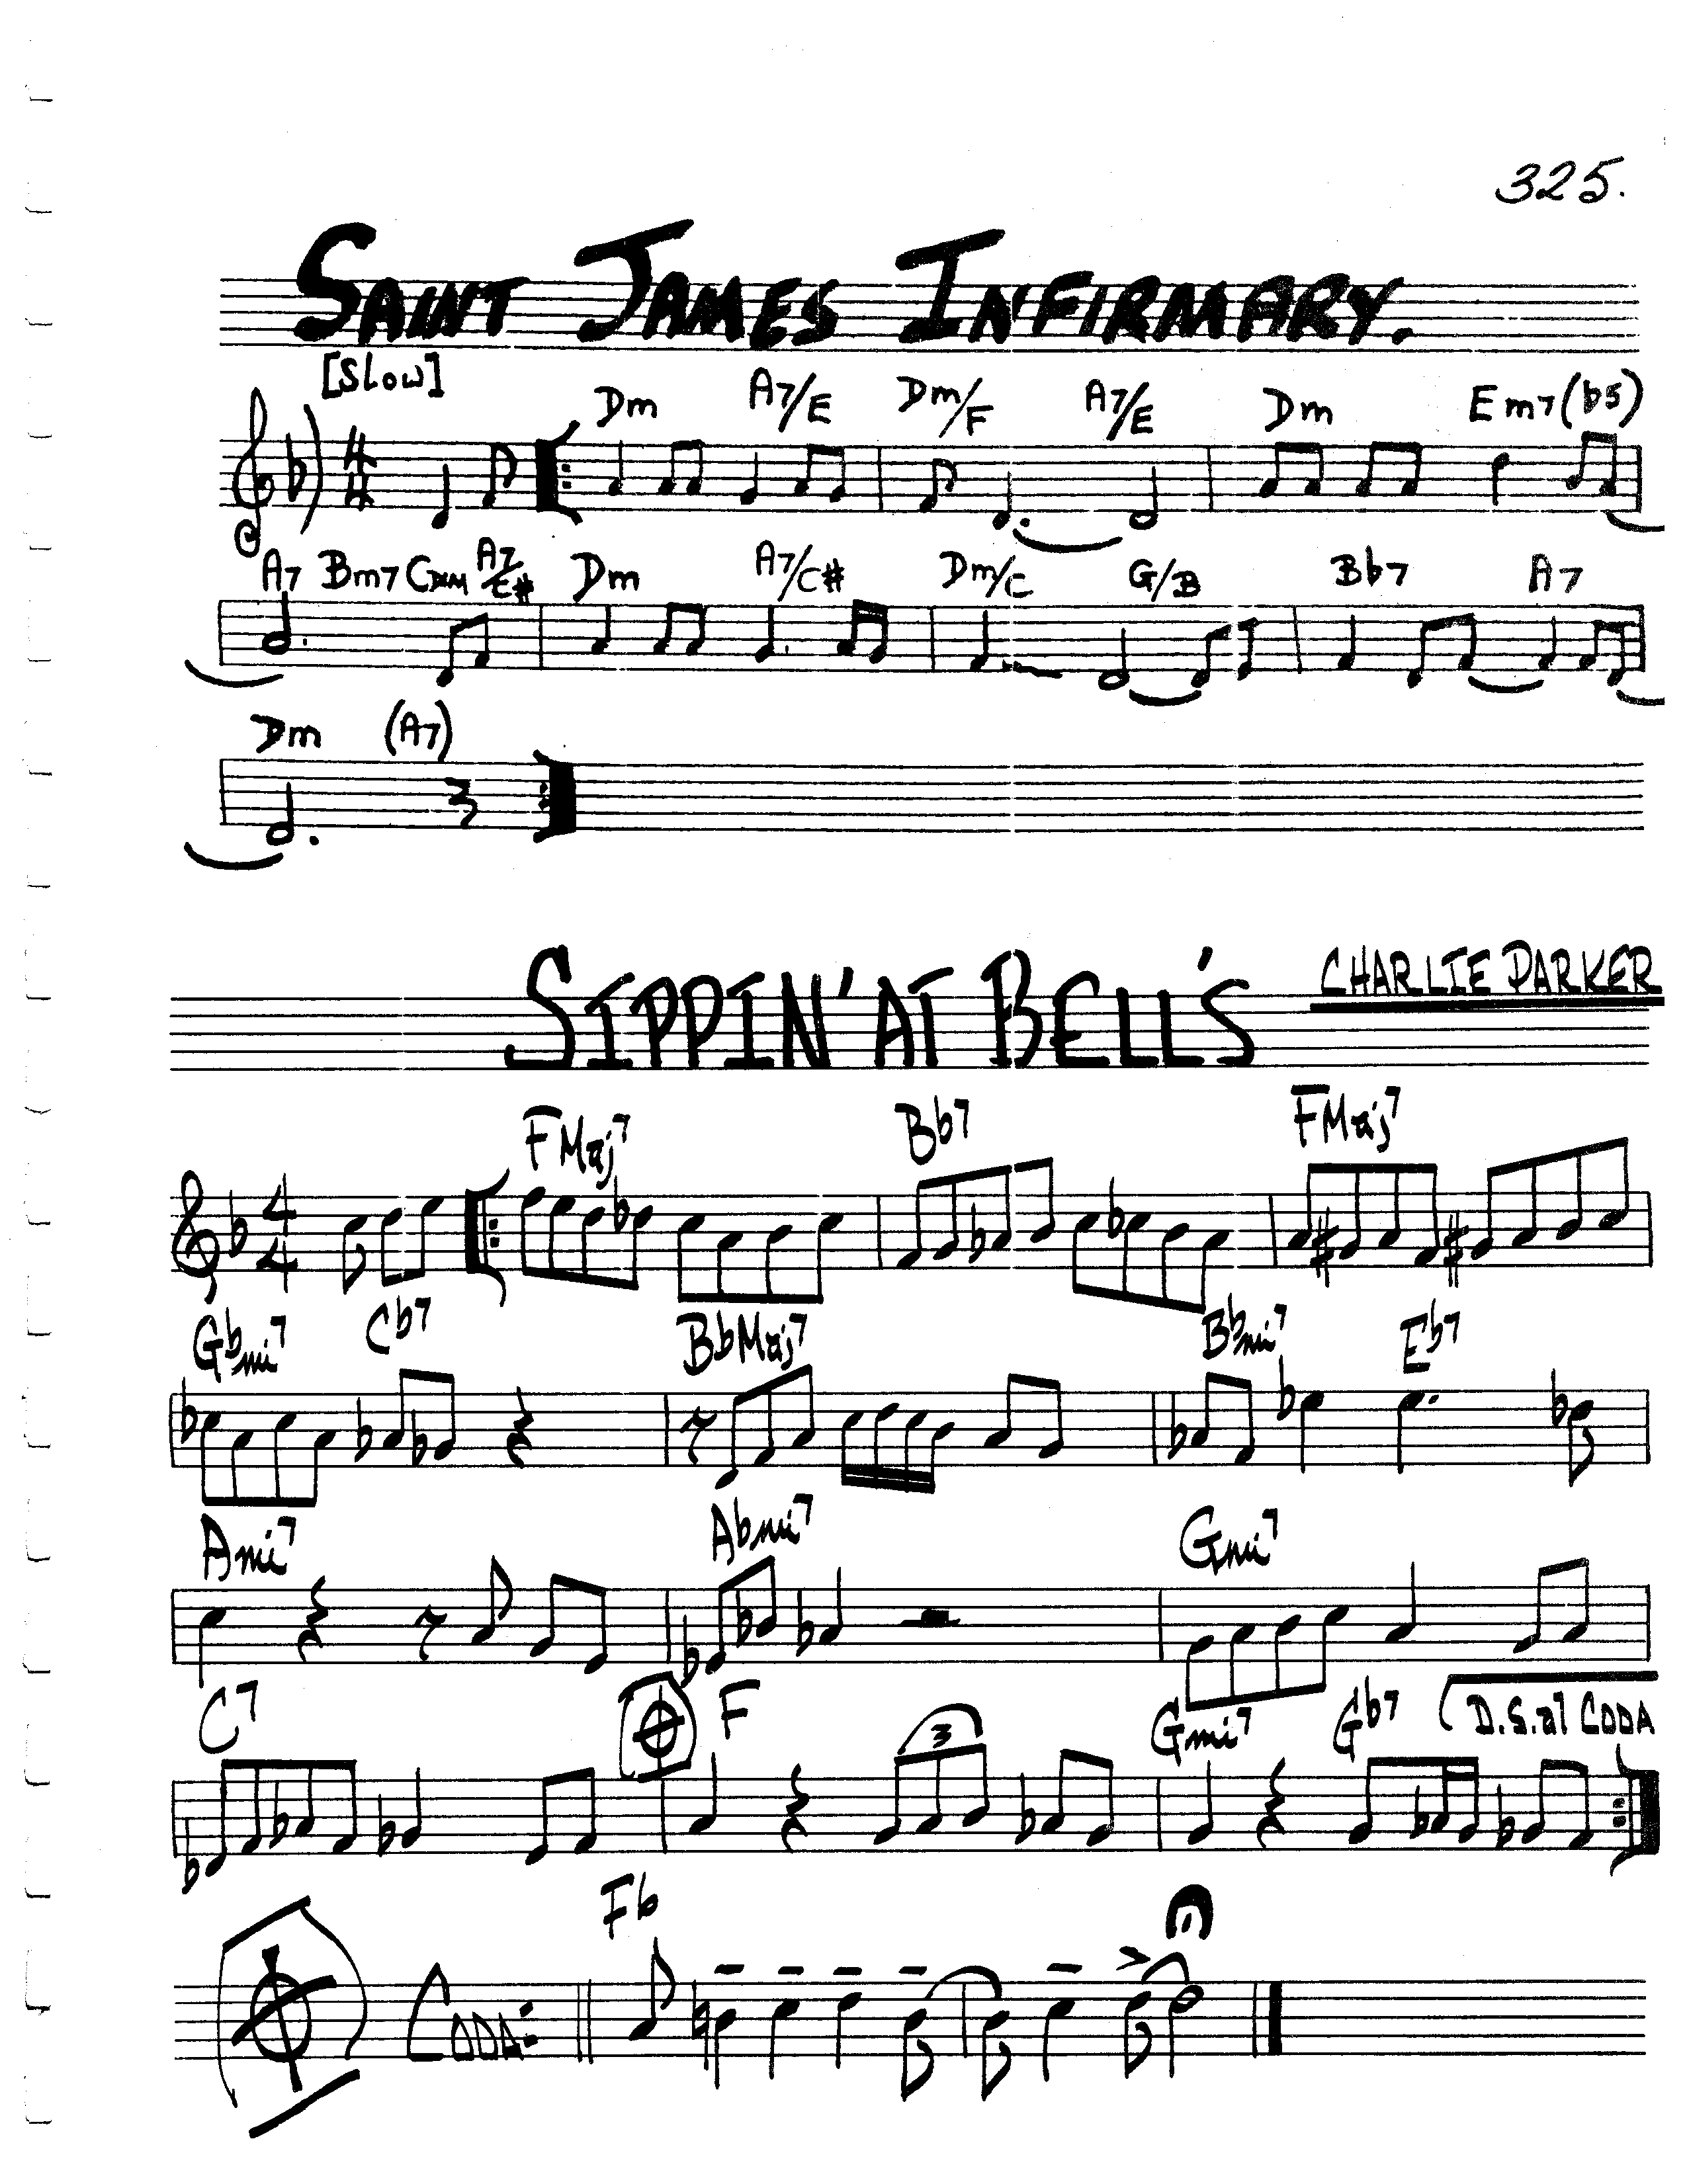 325.
SAINT JAMES INFIRMARY.
[SLOW]
Dm A7/E Dm/F A7/E Dm Em7(b5)
4/4
A7 Bm7 CDIM A7/C# Dm A7/C# Dm/C G/B Bb7 A7
Dm (A7)
SIPPIN' AT BELL'S CHARLIE PARKER
FMaj7 Bb7 FMaj7
4/4
Gbmi7 Cb7 BbMaj7 Bbmi7 Eb7
Ami7 Abmi7 Gmi7
C7 F Gmi7 Gb7 D.S. al CODA
3
F6
CODA: